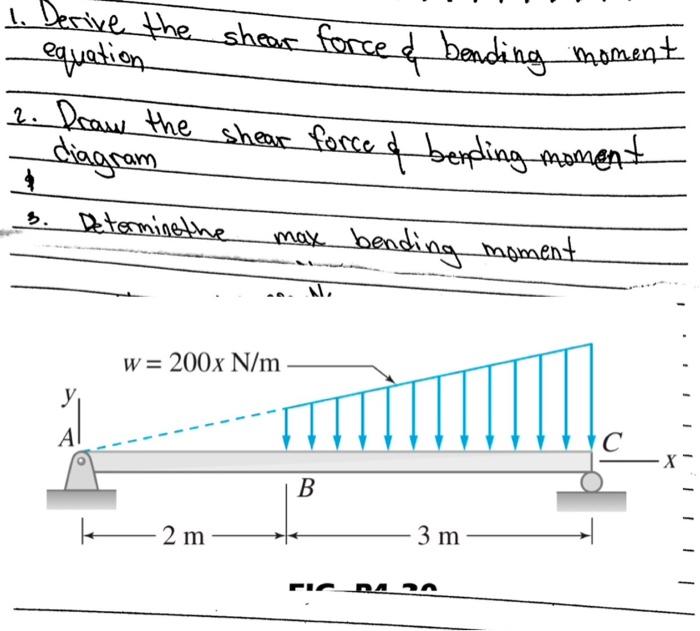 1. Derive the shear force & bending moment
equation
2. Draw the shear force & bending moment
diagram
3. Determine the max bending moment
w = 200x N/m
y
A
C
x
B
2 m
3 m